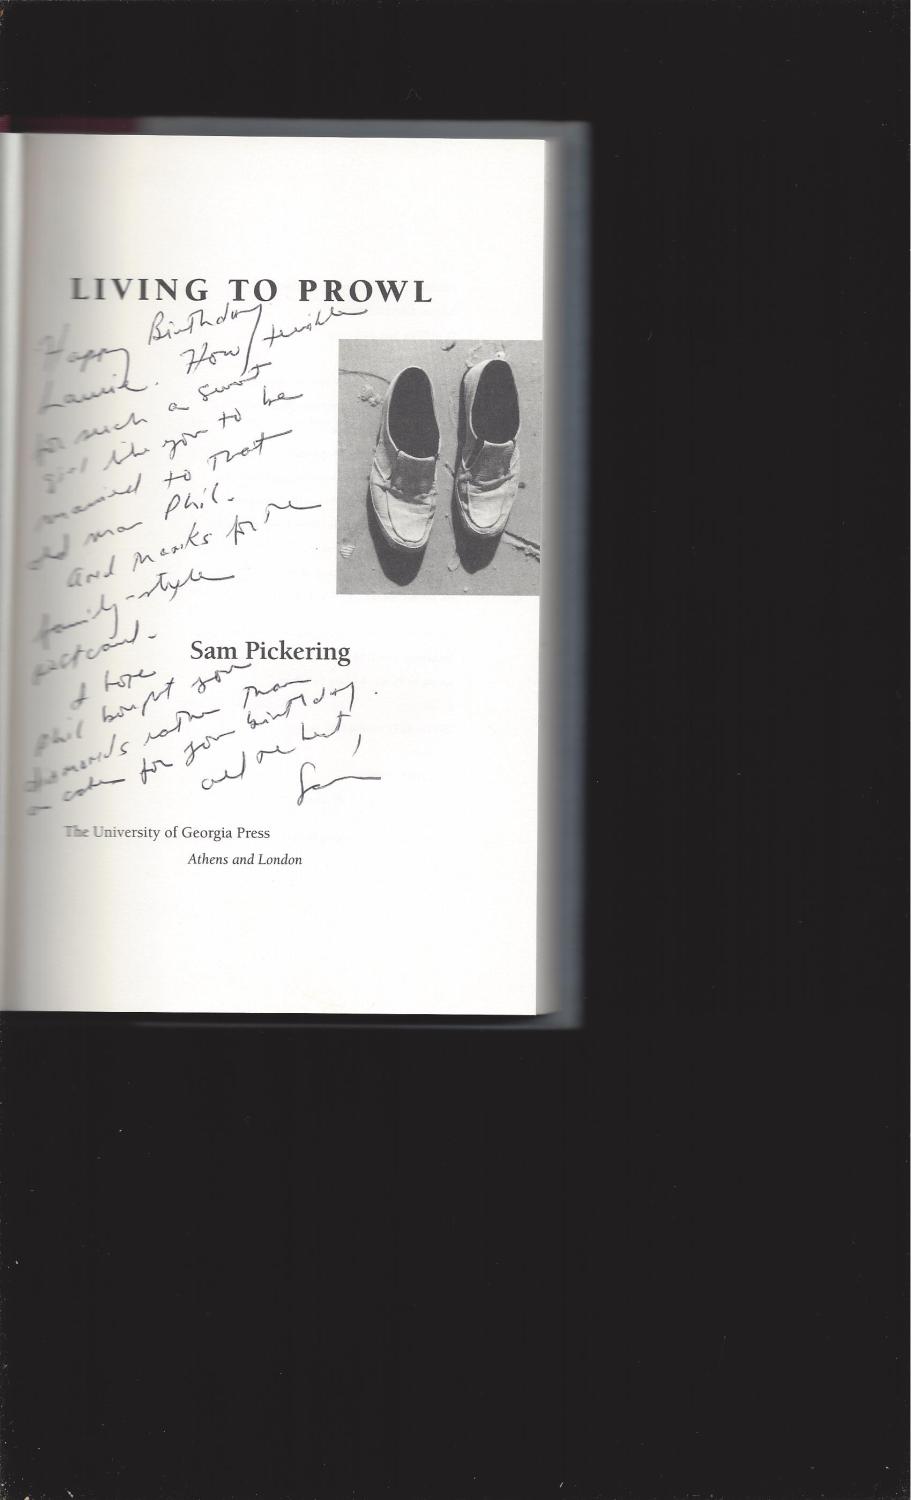 LIVING TO PROWL
Happy Birthday
Laurie. How terrible
for such a sweet
girl like you to be
married to that
old man Phil.
And thanks for the
family-style
postcard.
Sam Pickering
I hope
Phil bought you
diamonds rather than
a cake for your birthday.
all the best,
Sam
The University of Georgia Press
Athens and London